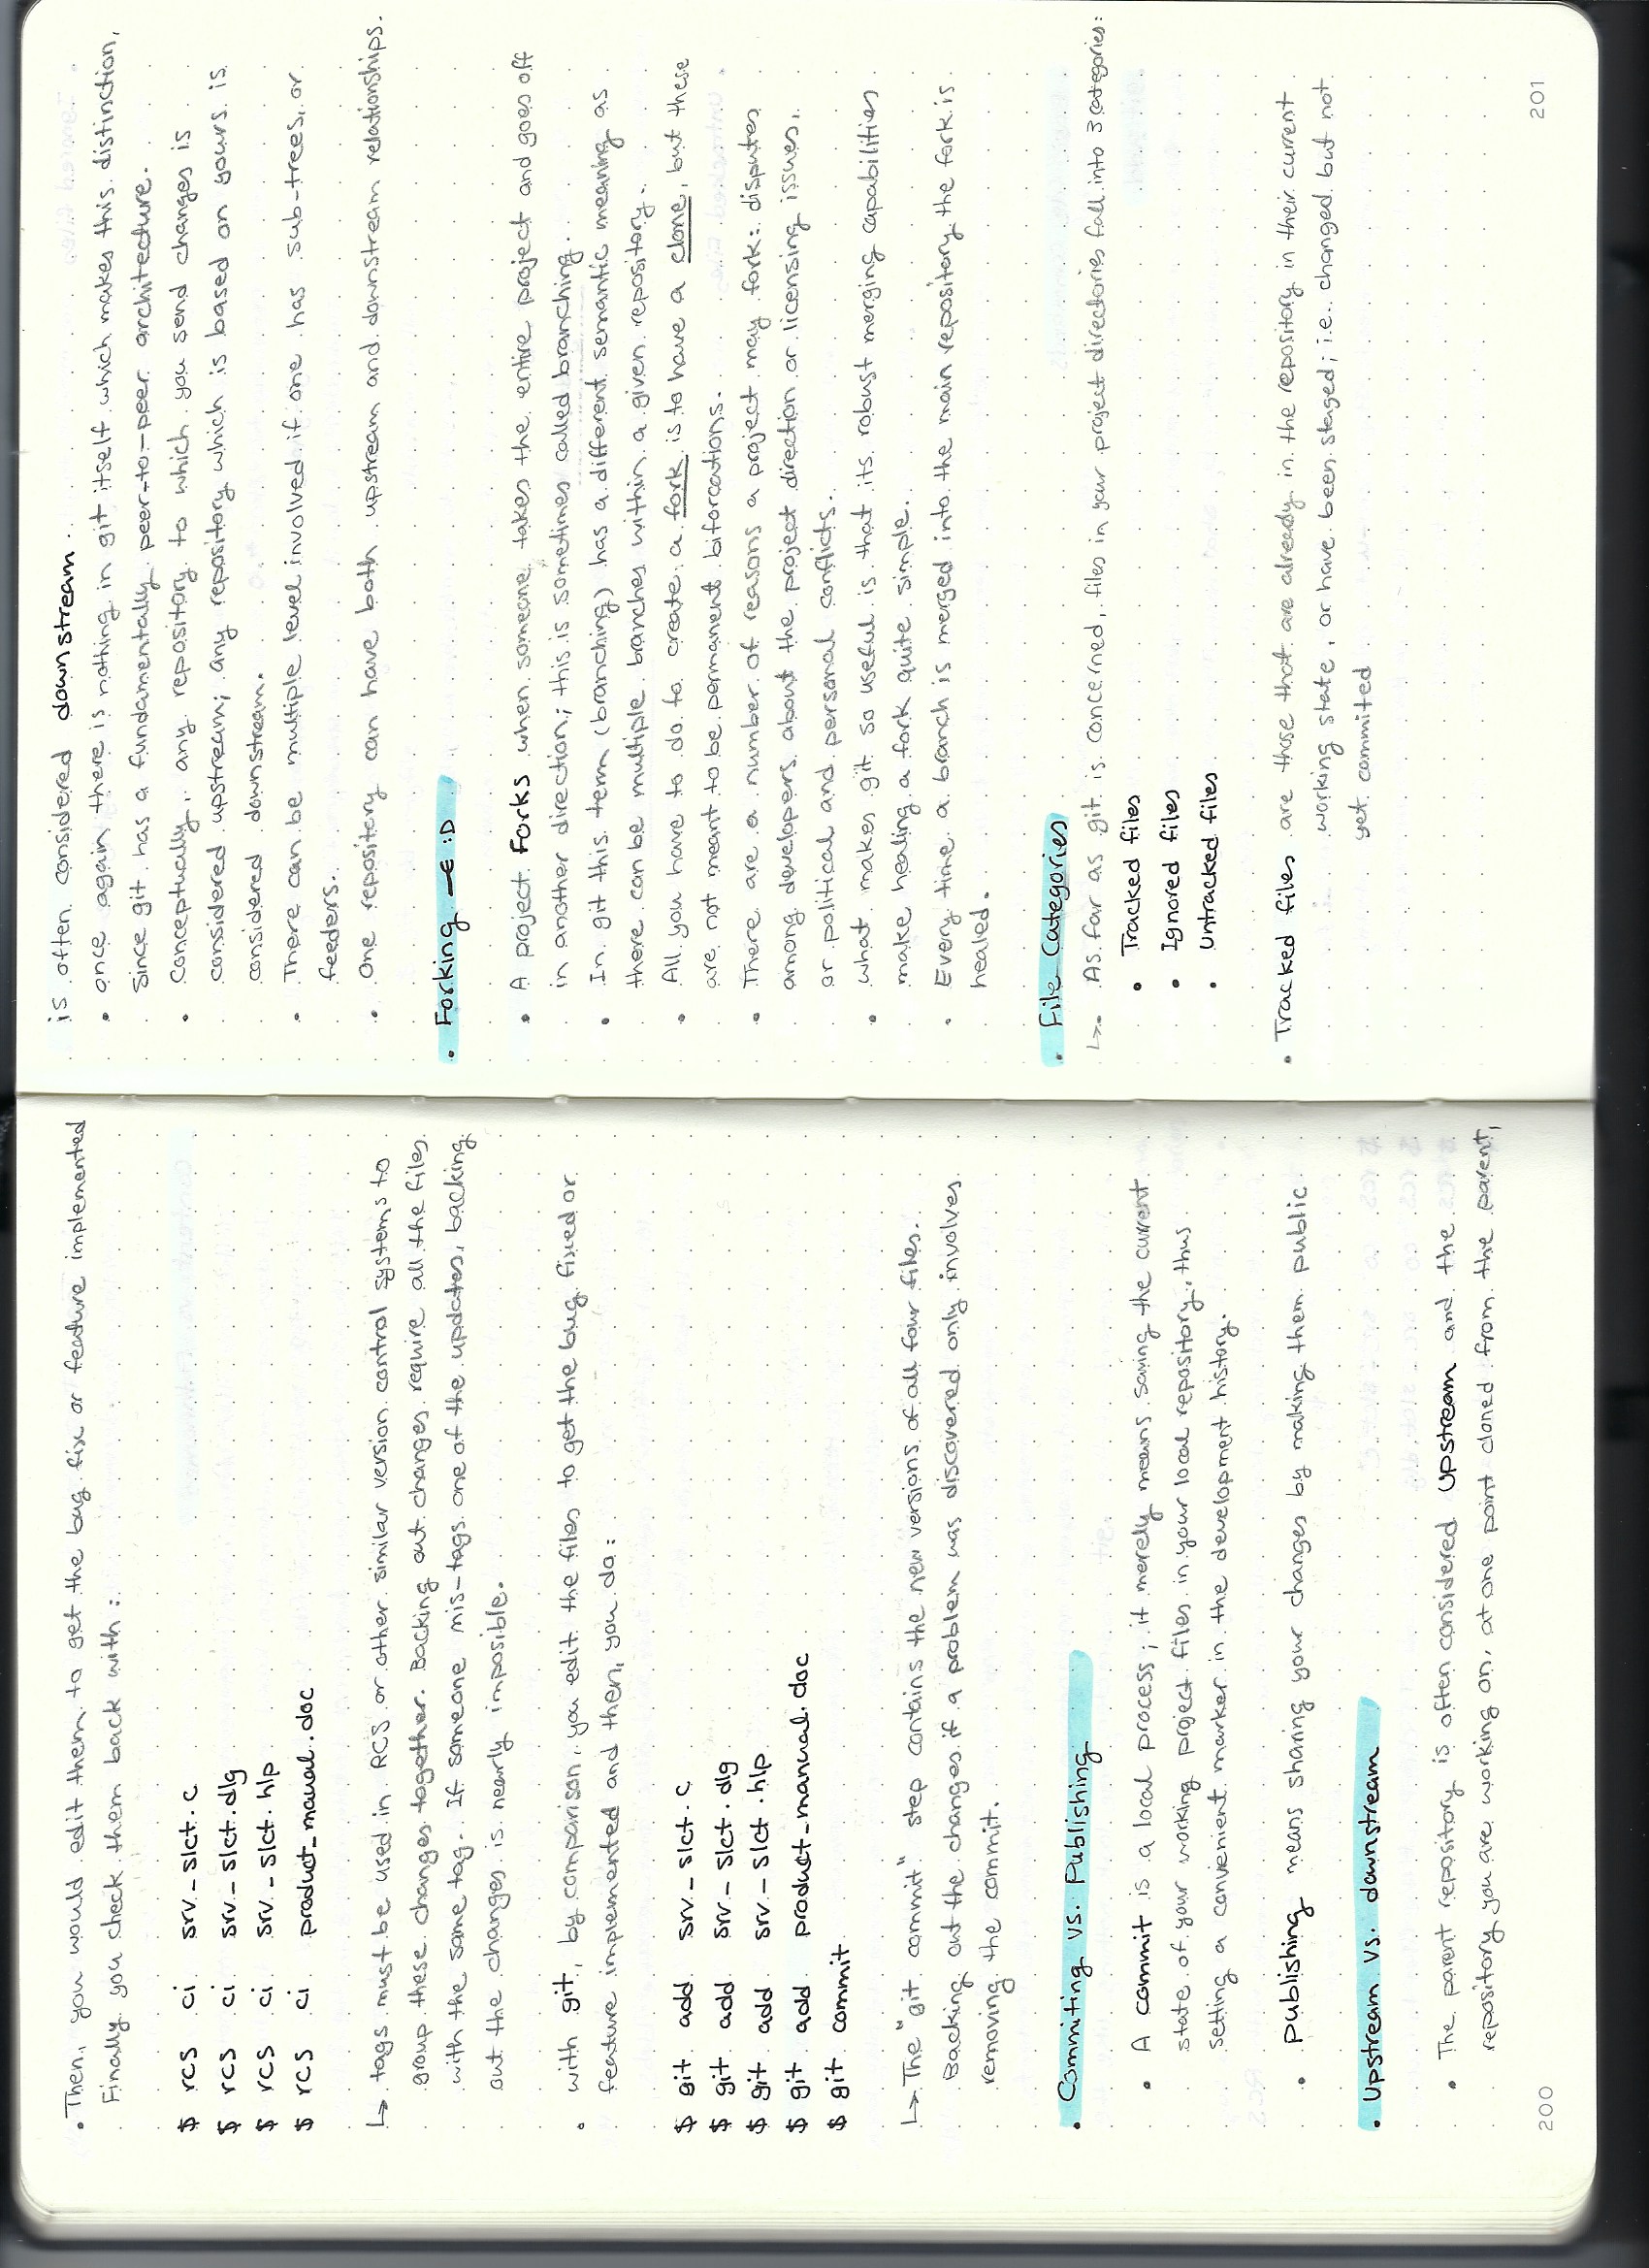 . Then, you would edit them to get the bug fix or feature implemented
Finally you check them back with :
$ rcs ci srv_slct.c
$ rcs ci srv_slct.dlg
$ rcs ci srv_slct.hlp
$ rcs ci product_manual.doc
↳ tags must be used in RCS or other similar version control systems to
group these changes together. Backing out changes require all the files
with the same tag. If someone mis-tags one of the updates, backing
out the changes is nearly imposible.
. with git, by comparison, you edit the files to get the bug fixed or
feature implemented and then, you do :
$ git add srv_slct.c
$ git add srv_slct.dlg
$ git add srv_slct.hlp
$ git add product_manual.doc
$ git commit
↳ The "git commit" step contains the new versions of all four files.
Backing out the changes if a problem was discovered only involves
removing the commit.
. Commiting vs. Publishing
. A commit is a local process; it merely means saving the current
state of your working project files in your local repository, thus
setting a convenient marker in the development history.
. Publishing means sharing your changes by making them public
. Upstream vs. downstream
. The parent repository is often considered upstream and the
repository you are working on, at one point cloned from the parent,
200
is often considered downstream.
. once again there is nothing in git itself which makes this distinction,
since git has a fundamentally peer-to-peer architecture.
. Conceptually, any repository to which you send changes is
considered upstream; any repository which is based on yours is
considered downstream.
. There can be multiple level involved if one has sub-trees, or
feeders.
. One repository can have both upstream and downstream relationships.
. Forking —∈ :D
. A project Forks when someone takes the entire project and goes off
in another direction; this is sometimes called branching.
. In git this term (branching) has a different semantic meaning as
there can be multiple branches within a given repository.
. All you have to do to create a fork is to have a clone, but these
are not meant to be permanent biforcations.
. There are a number of reasons a project may fork: disputes
among developers about the project direction or licensing issues,
or political and personal conflicts.
. what makes git so useful is that its robust merging capabilities
make healing a fork quite simple.
. Every time a branch is merged into the main repository the fork is
healed.
. File Categories
↳ . As far as git is concerned, files in your project directories fall into 3 categories:
. Tracked files
. Ignored files
. Untracked files
. Tracked files are those that are already in the repository in their current
working state, or have been staged; i.e. changed but not
yet commited
201